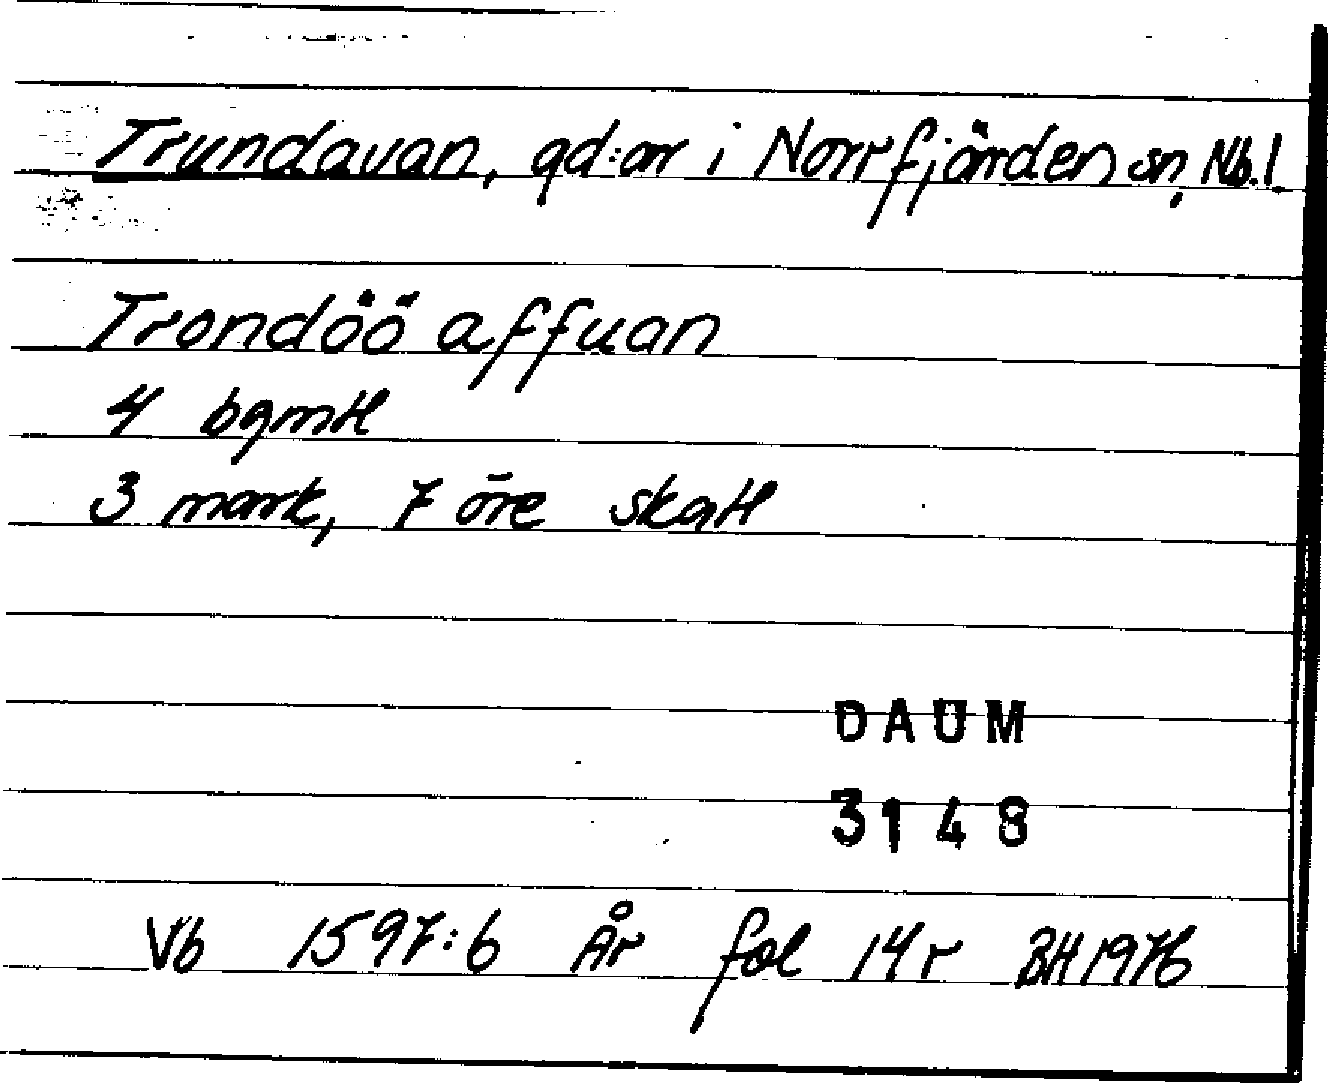 Trundavan, gd:ar i Norrfjärden sn, Nb.l.
Trondöö affuan
4 bgmtl
3 mark, 7 öre skatt
DAUM
3148
Vb 1597:6 År fol 14r BH 1976